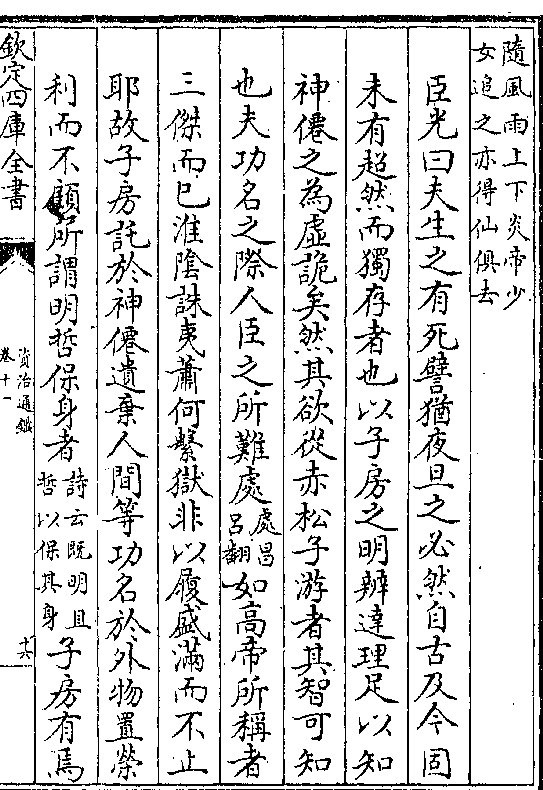 隨風雨上下炎帝少
女追之亦得仙俱去
臣光曰夫生之有死譬猶夜旦之必然自古及今固
未有超然而獨存者也以子房之明辨達理足以知
神僊之為虛詭矣然其欲從赤松子游者其智可知
也夫功名之際人臣之所難處處昌呂翻如高帝所稱者
三傑而已淮陰誅夷蕭何繫獄非以履盛滿而不止
耶故子房託於神僊遺棄人間等功名於外物置榮
利而不顧所謂明哲保身者詩云既明且哲以保其身子房有焉
欽定四庫全書
資治通鑑
卷十一
十六